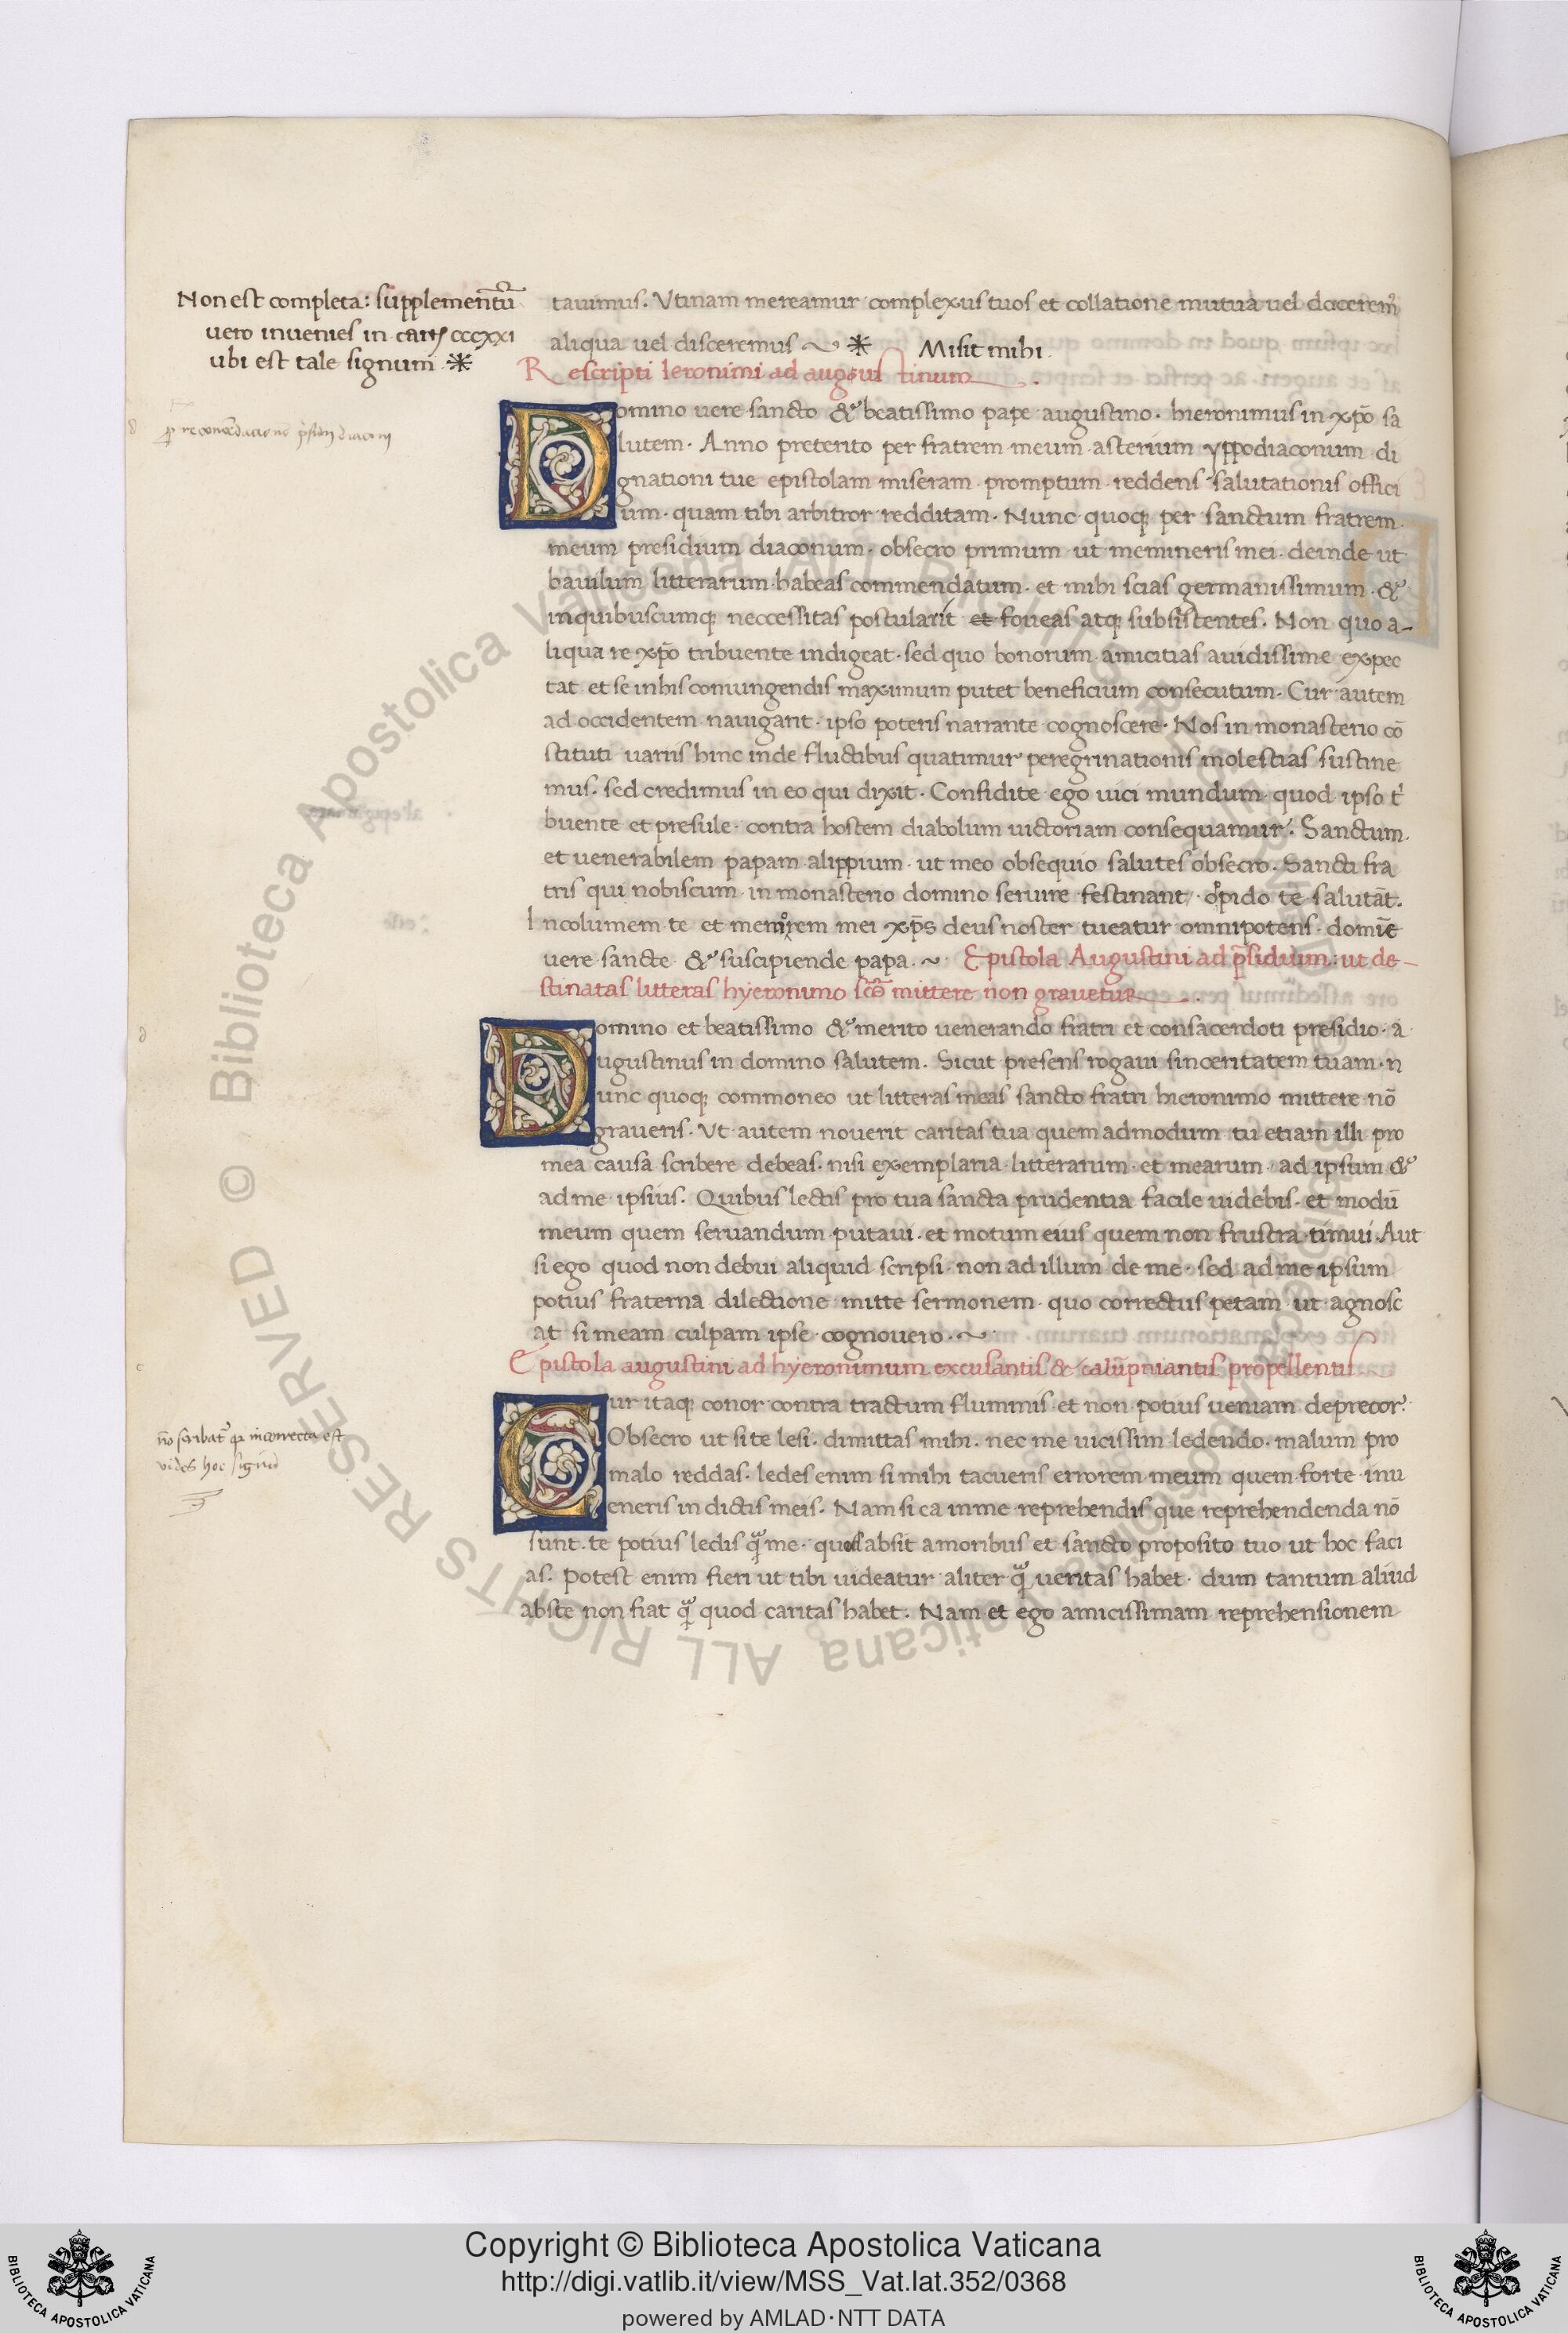 Non est completa: supplementũ
vero invenies in cartis cccxxi
ubi est tale signum ✻
tavimus. Vtinam mereamur complexus tuos et collatione mutua vel doceremꝰ
aliqua vel disceremus ~ ✻ Misit mihi
Rescripti Ieronimi ad augustinum
Domino vere sancto & beatissimo pape augustino. hieronimus in xp̄o sa
lutem. Anno preterito per fratrem meum asterium yppodiaconum di
gnationi tue epistolam miseram promptum reddens salutationis offici
um. quam tibi arbitror redditam. Nunc quoqꝫ per sanctum fratrem
meum presidium diaconum. obsecro primum ut memineris mei. deinde ut
baiulum litterarum habeas commendatum. et mihi scias germanissimum. &
inquibuscumqꝫ neccessitas postularit et foveas atqꝫ subsistentes. Non quo a-
liqua re xp̄o tribuente indigeat. sed quo bonorum amicitias avidissime expec
tat et se inhis coniungendis maximum putet beneficium consecutum. Cur autem
ad occidentem navigarit. ipso poteris narrante cognoscere. Nos in monasterio cō
stituti variis hinc inde fluctibus quatimur peregrinationis molestias sustine
mus. sed credimus in eo qui dixit. Confidite ego vici mundum quod ipso tⁱ
buente et presule. contra hostem diabolum victoriam consequamur. Sanctum
et venerabilem papam alippium. ut meo obsequio salutes obsecro. Sancti fra
tris qui nobiscum in monasterio domino servire festinant, opido te salutāt.
Incolumem te et memorem mei xp̄s deus noster tueatur omnipotens. domiē
vere sancte & suscipiende papa. ~ Epistola Augustini ad p̄sidium: ut de-
stinatas litteras hyeronimo sc̄o mittere non gravetur
Domino et beatissimo & merito venerando fratri et consacerdoti presidio. a
ugustinus in domino salutem. Sicut presens rogavi sinceritatem tuam. n
unc quoqꝫ commoneo ut litteras meas sancto fratri hieronimo mittere nō
graveris. Vt autem noverit caritas tua quemadmodum tu etiam illi pro
mea causa scribere debeas. nisi exemplaria litterarum et mearum ad ipsum &
ad me ipsius. Quibus lectis pro tua sancta prudentia facile videbis. et modū
meum quem servandum putavi. et motum eius quem non frustra timui. Aut
si ego quod non debui aliquid scripsi. non ad illum de me. sed ad me ipsum
potius fraterna dilectione mitte sermonem quo correctus petam ut agnosc
at si meam culpam ipse cognovero. ~
Epistola augustini ad hyeronimum excusantis & calūpniantis propellentis
Cur itaqꝫ conor contra tractum fluminis et non potius veniam deprecor?
Obsecro ut si te lesi. dimittas mihi. nec me vicissim ledendo. malum pro
malo reddas. ledes enim si mihi tacueris errorem meum quem forte inv
eneris in dictis meis. Nam si ea inme reprehendis que reprehendenda nō
sunt. te potius ledis qᷓ me. quod absit amoribus et sancto proposito tuo ut hoc faci
as. Potest enim fieri ut tibi videatur aliter qᷓ veritas habet. dum tantum aliud
abste non fiat qᷓ quod caritas habet. Nam et ego amicissimam reprehensionem
nō scribat qꝛ incorrecta est
vides hoc signū
Copyright © Biblioteca Apostolica Vaticana
http://digi.vatlib.it/view/MSS_Vat.lat.352/0368
powered by AMLAD·NTT DATA
BIBLIOTECA APOSTOLICA VATICANA
BIBLIOTECA APOSTOLICA VATICANA